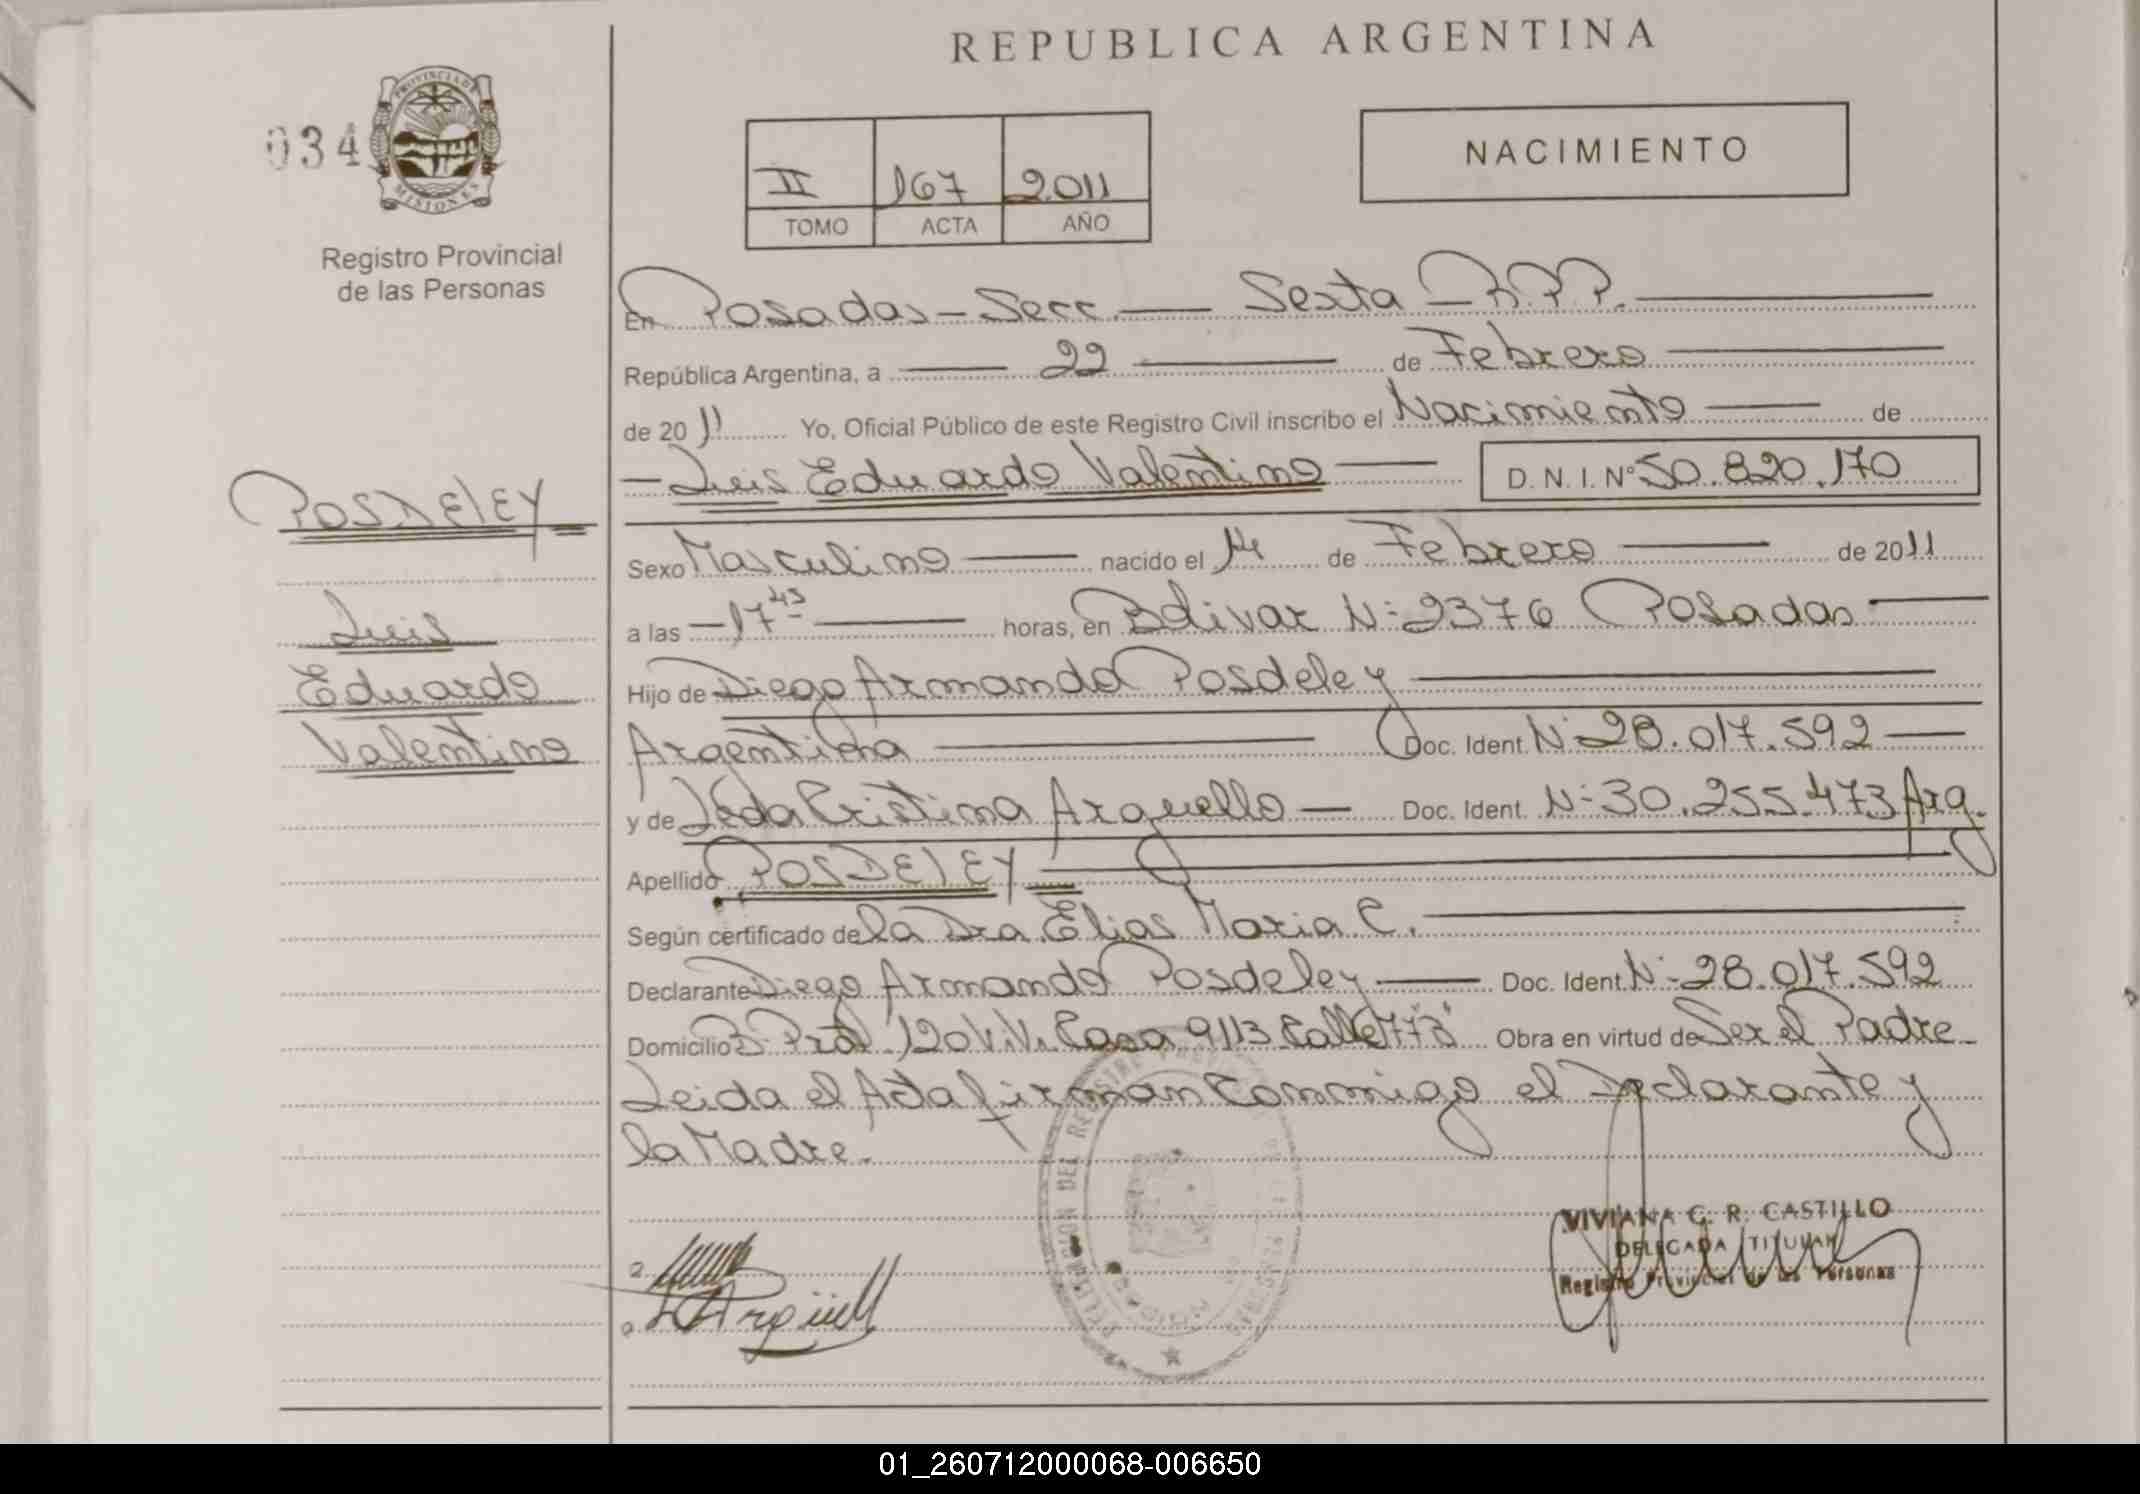 REPUBLICA ARGENTINA
034
PROVINCIA DE MISIONES
Registro Provincial
de las Personas
II 167 2.011
TOMO ACTA AÑO
NACIMIENTO
En Posadas - Secc. — Sexta — R.P.P.
República Argentina, a — 22 — de Febrero
de 2011 Yo, Oficial Público de este Registro Civil inscribo el Nacimiento — de
— Luis Eduardo Valentino — D. N. I. Nº 50.820.170
POSDELEY
Luis
Eduardo
Valentino
Sexo Masculino — nacido el 14 de Febrero — de 2011
a las — 17 45 — horas, en Bolivar Nº 2376 Posadas —
Hijo de Diego Armando Posdeley —
Argentina — Doc. Ident. Nº 28.017.592 —
y de Leda Cristina Arguello — Doc. Ident. Nº 30.255.473 Arg.
Apellido POSDELEY —
Según certificado de la Dra. Elias Maria C. —
Declarante Diego Armando Posdeley — Doc. Ident. Nº 28.017.592
Domicilio B. 120 Viv. Casa 9113 Calle Obra en virtud de Ser el Padre
Leida el Acta firman Conmigo el Declarante y
la Madre.
VIVIANA C. R. CASTILLO
DELEGADA TITULAR
Registro Provincial de las Personas
Argüell
01_260712000068-006650